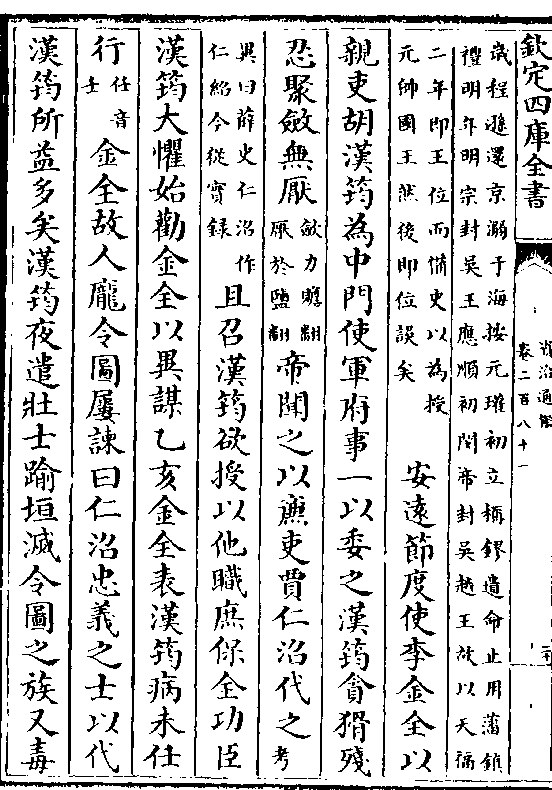 欽定四庫全書
資治通鑑
卷二百八十一
歲程遜還京溺于海按元瓘初立稱鏐遺命止用藩鎮
禮明年明宗封吳王應順初閔帝封吳越王故以天福
二年即王位而備史以為授
元帥國王然後即位誤矣
安遠節度使李金全以
親吏胡漢筠為中門使軍府事一以委之漢筠貪猾殘
忍聚斂無厭
斂力贍翻
厭於鹽翻
帝聞之以廉吏賈仁沼代之
考
異曰薛史仁沼作
仁紹今從實錄
且召漢筠欲授以他職庶保全功臣
漢筠大懼始勸金全以異謀乙亥金全表漢筠病未任
行
任音
士
金全故人龐令圖屢諫曰仁沼忠義之士以代
漢筠所益多矣漢筠夜遣壯士踰垣滅令圖之族又毒